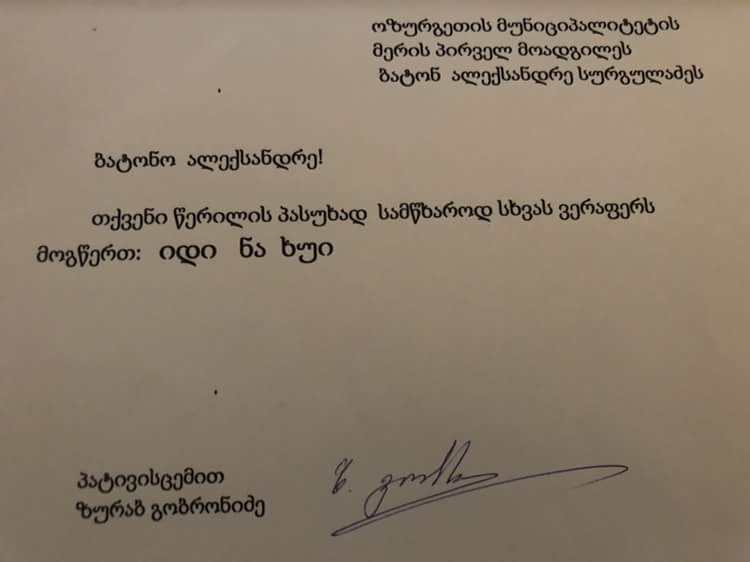 ოზურგეთის მუნიციპალიტეტის
მერის პირველ მოადგილეს
ბატონ ალექსანდრე სურგულაძეს
ბატონო ალექსანდრე!
თქვენი წერილის პასუხად სამწხაროდ სხვას ვერაფერს
მოგწერთ: იდი ნა ხუი
პატივისცემით
ზურაბ გობრონიძე